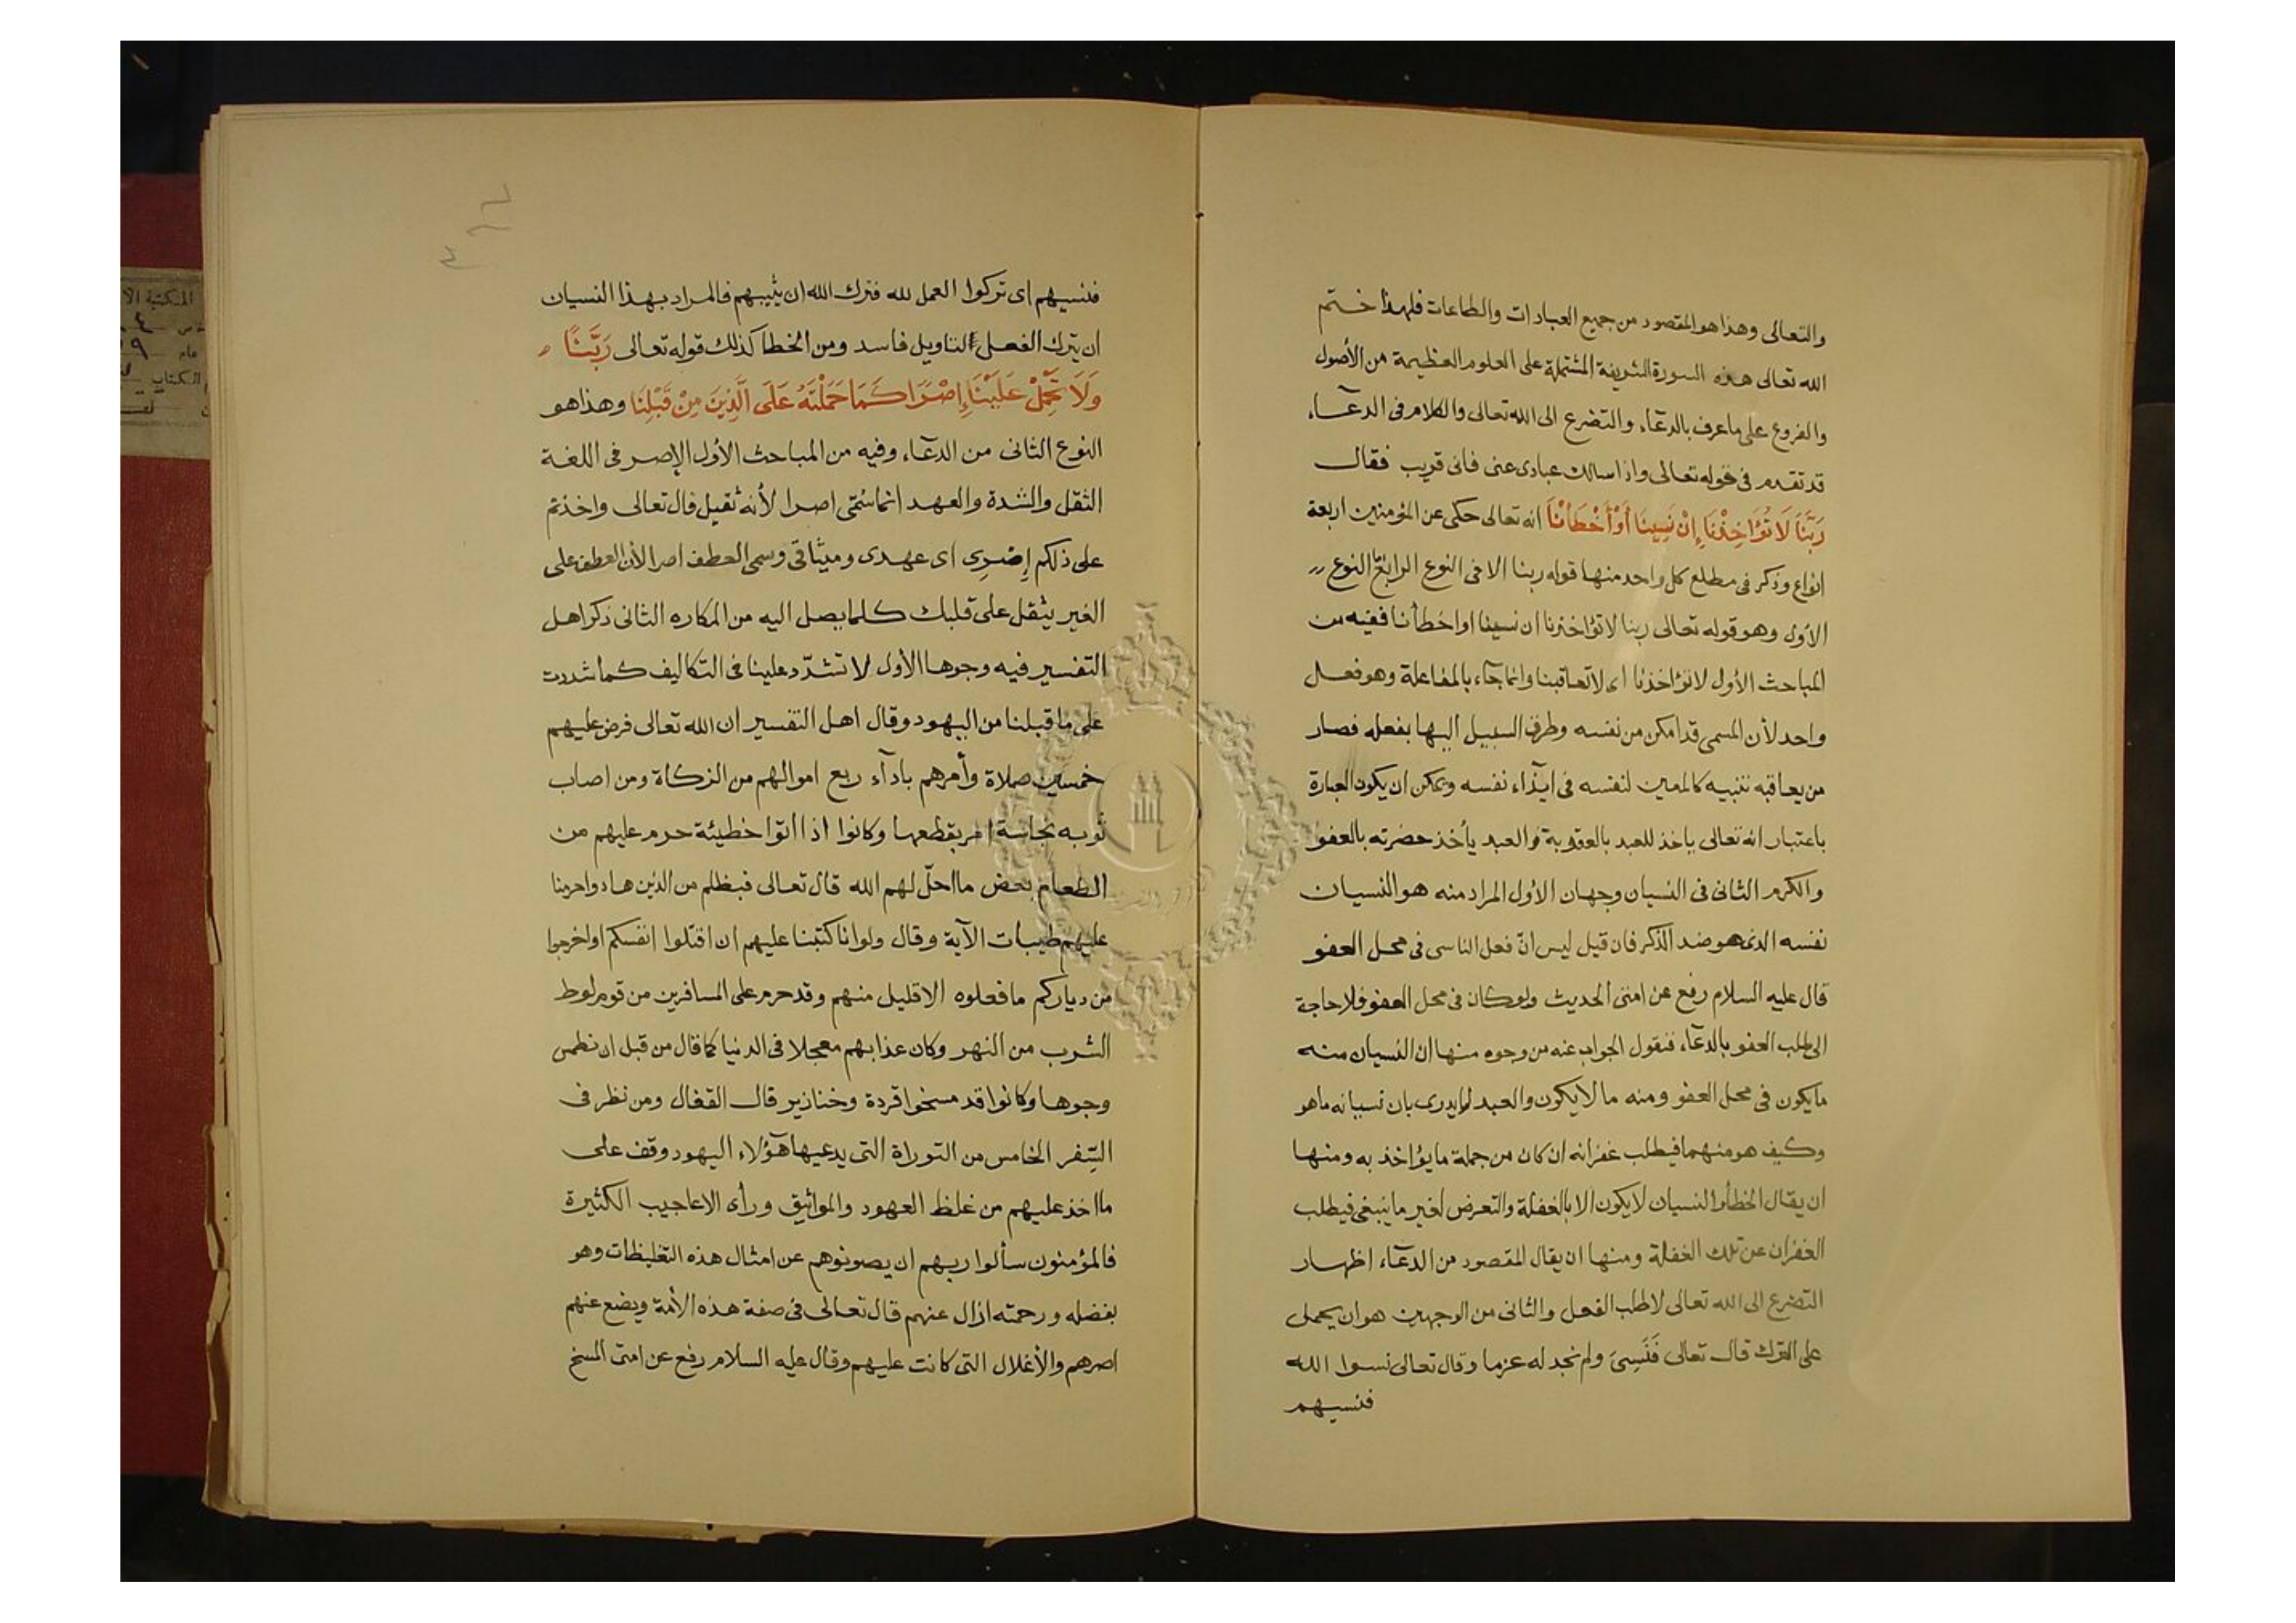 والتعالى وهذا هو المقصود من جميع العبادات والطاعات فلهذا ختم
الله تعالى هذه السورة الشريفة المشتملة على العلوم العظيمة من الأصول
والفروع على ما عرف بالدعآء والتضرع الى الله تعالى والكلام فى الدعآء
قد تقدم فى قوله تعالى واذا سالك عبادى عنى فانى قريب فقال
رَبَّنَا لَا تُؤَاخِذْنَا إِنْ نَسِينَا أَوْ أَخْطَأْنَا انه تعالى حكى عن المؤمنين اربعة
انواع وذكر فى مطلع كل واحد منها قوله ربنا الا فى النوع الرابع النوع
الأول وهو قوله تعالى ربنا لا تؤاخذنا ان نسينا او اخطأنا ففيه من
المباحث الأول لا تؤاخذنا اى لا تعاقبنا وانما جآء بالمفاعلة وهو فعل
واحد لأن المسمى قد امكن من نفسه وطرق السبيل اليها بفعله فصار
من يعاقبه تنبيه كالمعين لنفسه فى ايذآء نفسه ويمكن ان يكون العبارة
باعتبار انه تعالى ياخذ للعبد بالعقوبة والعبد يأخذ حضرته بالعفو
والكرم الثانى فى النسيان وجهان الأول المراد منه هو النسيان
نفسه الذى هو ضد الذكر فان قيل ليس انّ فعل الناسى فى محل العفو
قال عليه السلام رفع عن امتى الحديث ولو كان فى محل العفو فلا حاجة
الى طلب العفو بالدعآء فنقول الجواب عنه من وجوه منها ان النسيان منه
ما يكون فى محل العفو ومنه ما لا يكون والعبد لا يدرى بان نسيانه ما هو
وكيف هو منهما فيطلب غفرانه ان كان من جملة ما يؤاخذ به ومنها
ان يقال الخطأ والنسيان لا يكون الا بالغفلة والتعرض لغير ما ينبغى فيطلب
الغفران عن تلك الغفلة ومنها ان يقال المقصود من الدعآء اظهار
التضرع الى الله تعالى لا طلب الفعل والثانى من الوجهين هو ان يحمل
على الترك قال تعالى فَنَسِىَ ولم نجد له عزما وقال تعالى نسوا الله
فنسيهم
فنسيهم اى تركوا العمل لله فترك الله ان يثيبهم فالمراد بهذا النسيان
ان يترك الفعل لتاويل فاسد ومن الخطأ كذلك قوله تعالى رَبَّنَا
وَلَا تَحْمِلْ عَلَيْنَا إِصْرًا كَمَا حَمَلْتَهُ عَلَى الَّذِينَ مِنْ قَبْلِنَا وهذا هو
النوع الثانى من الدعآء وفيه من المباحث الأول الإصر فى اللغة
الثقل والشدة والعهد انما سُمّى اصرا لأنه ثقيل قال تعالى واخذتم
على ذلكم إِصْرِى اى عهدى وميثاقى وسمى العطف اصرا لأن العطف على
الغير يثقل على قلبك كلما يصل اليه من المكاره الثانى ذكر اهل
التفسير فيه وجوها الأول لا تشدّد علينا فى التكاليف كما شددت
على ما قبلنا من اليهود وقال اهل التفسير ان الله تعالى فرض عليهم
خمسين صلاة وأمرهم بادآء ربع اموالهم من الزكاة ومن اصاب
ثوبه نجاسة امر بقطعها وكانوا اذا اتوا خطيئة حرم عليهم من
الطعام بعض ما احلّ لهم الله قال تعالى فبظلم من الذين هادوا حرمنا
عليهم طيبات الآية وقال ولو انا كتبنا عليهم ان اقتلوا انفسكم او اخرجوا
من دياركم ما فعلوه الا قليل منهم وقد حرم على المسافرين من قوم لوط
الشرب من النهر وكان عذابهم معجلا فى الدنيا كما قال من قبل ان نطمس
وجوها وكانوا قد مسخوا قردة وخنازير قال القفال ومن نظر فى
السِّفر الخامس من التوراة التى يدعيها هؤلاء اليهود وقف على
ما اخذ عليهم من غلظ العهود والمواثيق ورأى الاعاجيب الكثيرة
فالمؤمنون سألوا ربهم ان يصونوهم عن امثال هذه التغليظات وهو
بفضله ورحمته ازال عنهم قال تعالى فى صفة هذه الأمة ويضع عنهم
اصرهم والأغلال التى كانت عليهم وقال عليه السلام رفع عن امتى المسخ